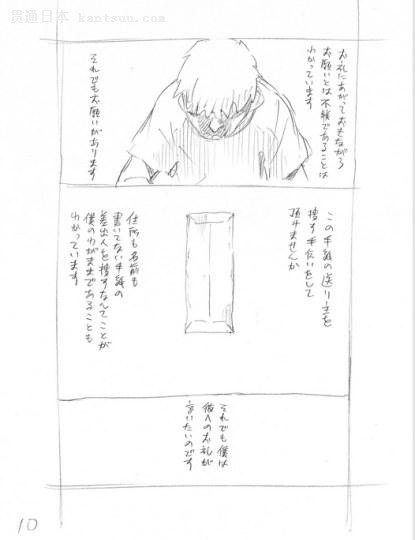 贯通日本 kantsuu.com
お礼にあがっておきながら
お願いとは不躾であることは
わかっています
それでもお願いがあります
この手紙の送り主を
捜す手伝いをして
頂けませんか
住所も名前も
書いてない手紙の
差出人を捜すなんてことが
僕のわがままであることも
わかっています
それでも僕は
彼へのお礼が
言いたいのです
10